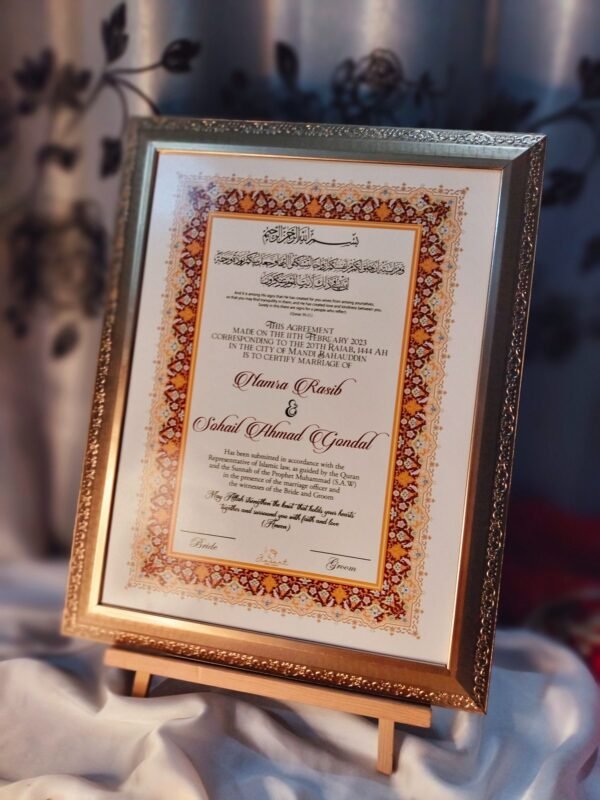 بسم الله الرحمن الرحيم
ومن آياته أن خلق لكم من أنفسكم أزواجا لتسكنوا إليها وجعل بينكم مودة ورحمة
إن في ذلك لآيات لقوم يتفكرون
And it is among His signs that He has created for you wives from among yourselves,
so that you may find tranquility in them, and He has created love and kindness between you.
Surely in this there are signs for a people who reflect.
(Quran 30:21)
This Agreement
made on the 11th February 2023
corresponding to the 20th Rajab, 1444 AH
in the city of Mandi Bahauddin
is to certify marriage of
Hamra Rasib
&
Sohail Ahmad Gondal
Has been submitted in accordance with the
Representative of Islamic law, as guided by the Quran
and the Sunnah of the Prophet Muhammad (S.A.W)
in the presence of the marriage officer and
the witnesses of the Bride and Groom
May Allah strengthen the knot that holds your hearts
together and surround you with faith and love
(Ameen)
Bride
Groom